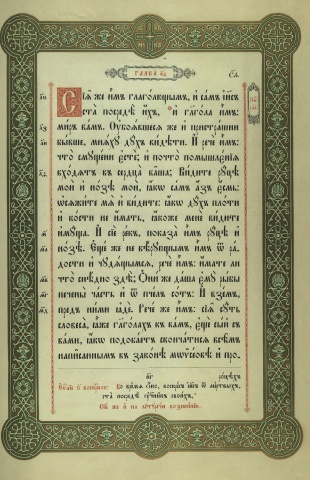 ГЛАВА к҃д
Сїѧ̑ же и҆̀мъ глаго́лющымъ, и҆ са́мъ і҆и҃съ
ста̀ посредѣ̀ и҆́хъ, и҆ глаго́ла и҆̀мъ:
ми́ръ ва́мъ. Оу҆боѧ́вшесѧ же и҆ пристра́шни
бы́вше, мнѧ́хꙋ дꙋ́хъ ви́дѣти. И҆ речѐ и҆̀мъ:
что̀ смꙋще́ни є҆стѐ; и҆ почто̀ помышлє́нїѧ
вхо́дѧтъ въ сердца̀ ва̑ша; Ви́дите рꙋ́цѣ
мои̑ и҆ но́зѣ моѝ, ꙗ҆́кѡ са́мъ а҆́зъ є҆́смь:
ѡ҆сѧжи́те мѧ̀ и҆ ви́дите: ꙗ҆́кѡ дꙋ́хъ пло́ти
и҆ ко́сти не и҆́мать, ꙗ҆́коже менѐ ви́дите
и҆мꙋ́ща. И҆ сїѐ ре́къ, показа̀ и҆̀мъ рꙋ́цѣ и҆
но́зѣ. Е҆ще́ же не вѣ́рꙋющымъ и҆̀мъ ѿ ра́-
дости и҆ чꙋдѧ́щымсѧ, речѐ и҆̀мъ: и҆́мате ли
что̀ снѣ́дно здѣ̀; Ѻ҆ни́ же да́ша є҆мꙋ̀ ры́бы
пече́ны ча́сть и҆ ѿ пче́лъ со́тъ: И҆ взе́мъ,
пред̾ ни́ми ꙗ҆дѐ. Рече́ же и҆̀мъ: сїѧ̑ сꙋ́ть
словеса̀, ꙗ҆̀же глаго́лахъ къ ва́мъ, є҆щѐ сы́й съ
ва́ми, ꙗ҆́кѡ подоба́етъ сконча́тисѧ всѣ̑мъ
напи́саннымъ въ зако́нѣ мѡѷсе́овѣ и҆ про-
ро́цѣхъ